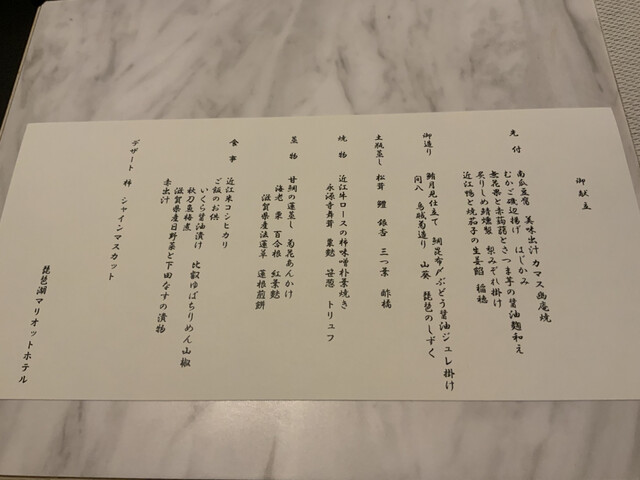 御献立
先付
南瓜豆腐 美味出汁 カマス幽庵焼
むかご磯辺揚げ はじかみ
無花果と赤蒟蒻とさつま芋の醤油麹和え
炙りしめ鯖燻製 梨みぞれ掛け
近江鴨と焼茄子の生姜餡 稲穂
御造り
鮪月見仕立て 鯛昆布〆ぶどう醤油ジュレ掛け
間八 烏賊菊造り 山葵 琵琶のしずく
土瓶蒸し 松茸 鱧 銀杏 三つ葉 酢橘
焼物
近江牛ロースの柿味噌朴葉焼き
永源寺舞茸 粟麩 笹葱 トリュフ
蒸物
甘鯛の蓮蒸し 菊花あんかけ
海老 栗 百合根 紅葉麩
滋賀県産法蓮草 蓮根煎餅
食事
近江米コシヒカリ
ご飯のお供
いくら醤油漬け 比叡ゆばちりめん山椒
秋刀魚梅煮
滋賀県産日野菜と下田なすの漬物
赤出汁
デザート 柿 シャインマスカット
琵琶湖マリオットホテル